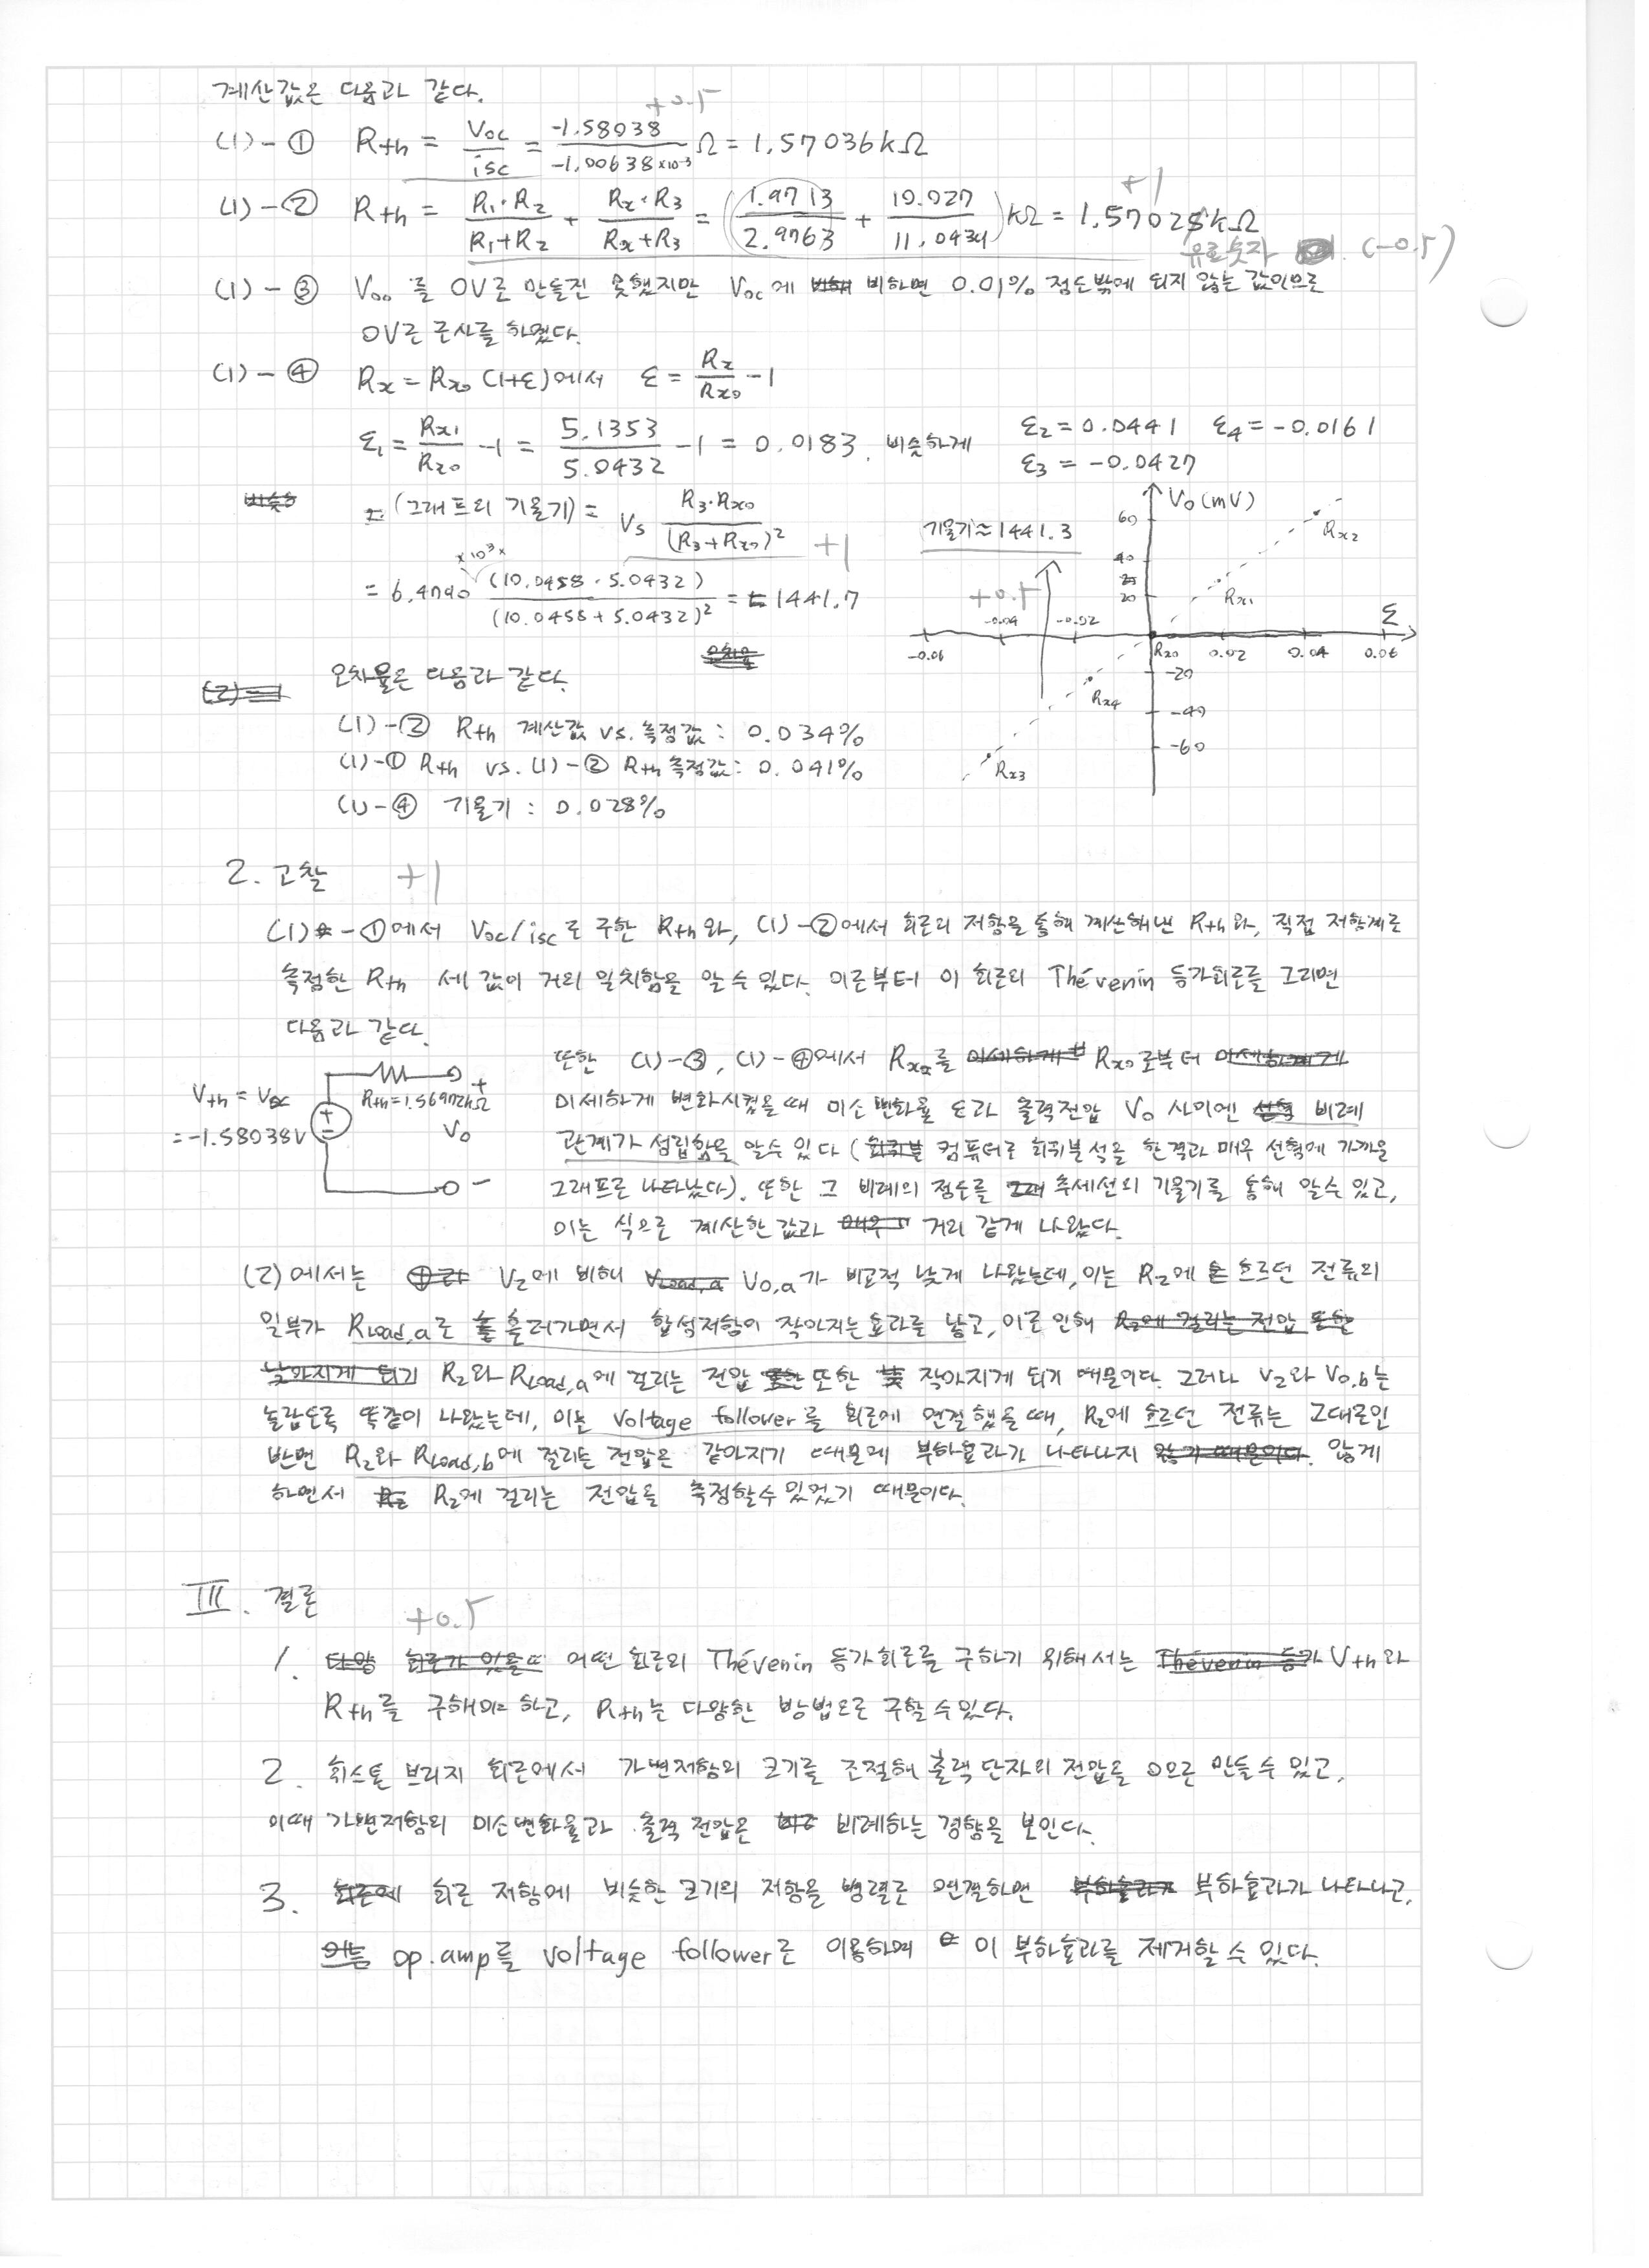 계산값은 다음과 같다.
+0.5
(1)-① Rth = Voc/isc = -1.58038/-1.00638×10⁻³ Ω = 1.57036kΩ
+1
(1)-② Rth = R₁·R₂/R₁+R₂ + Rx·R₃/Rx+R₃ = (1.9713/2.9763 + 10.027/11.0434)kΩ = 1.57025kΩ
유효숫자 (-0.5)
(1)-③ Voo를 0V로 만들진 못했지만 Voc에 비하면 0.01% 정도밖에 되지 않는 값이므로
0V로 근사를 하였다.
(1)-④ Rx = Rx₀(1+ε)에서 ε = Rx/Rx₀ -1
ε₁ = Rx₁/Rx₀ -1 = 5.1353/5.0432 -1 = 0.0183. 비슷하게 ε₂=0.0441 ε₄=-0.0161
ε₃ = -0.0427
(그래프의 기울기) = Vs R₃·Rx₀/(R₃+Rx₀)² +1
= 6.4790 ×10³× (10.0458·5.0432)/(10.0458+5.0432)² = 1441.7
기울기≈1441.3
+0.5
V₀(mV)
60
Rx₂
40
25
20
Rx₁
ε
-0.06 -0.04 -0.02 Rx₀ 0.02 0.04 0.06
-20
Rx₄
-40
-60
Rx₃
오차율은 다음과 같다.
(1)-② Rth 계산값 vs. 측정값: 0.034%
(1)-① Rth vs. (1)-② Rth 측정값: 0.041%
(1)-④ 기울기 : 0.028%
2. 고찰 +1
(1)-①에서 Voc/isc로 구한 Rth와, (1)-②에서 회로의 저항을 통해 계산해낸 Rth와, 직접 저항계로
측정한 Rth 세 값이 거의 일치함을 알 수 있다. 이로부터 이 회로의 Thévenin 등가회로를 그리면
다음과 같다.
Vth = Voc
= -1.58038V
Rth=1.56972kΩ
+
V₀
-
또한 (1)-③, (1)-④에서 Rx를 Rx₀로부터
미세하게 변화시켰을때 미소 변화율 ε과 출력전압 V₀ 사이엔 비례
관계가 성립함을 알수 있다 (컴퓨터로 회귀분석을 한결과 매우 선형에 가까운
그래프로 나타났다). 또한 그 비례의 정도를 추세선의 기울기를 통해 알수 있고,
이는 식으로 계산한 값과 거의 같게 나왔다.
(2)에서는 V₂에 비해 V₀,a가 비교적 낮게 나왔는데, 이는 R₂에 흐르던 전류의
일부가 Rload,a로 흘러가면서 합성저항이 작아지는 효과를 낳고, 이로 인해
R₂와 Rload,a에 걸리는 전압 또한 작아지게 되기 때문이다. 그러나 V₂와 V₀,b는
놀랍도록 똑같이 나왔는데, 이는 voltage follower를 회로에 연결했을 때, R₂에 흐르던 전류는 그대로인
반면 R₂와 Rload,b에 걸리는 전압은 같아지기 때문에 부하효과가 나타나지 않게
하면서 R₂에 걸리는 전압을 측정할수 있었기 때문이다.
III. 결론
+0.5
1. 어떤 회로의 Thévenin 등가회로를 구하기 위해서는 Vth와
Rth를 구해야 하고, Rth는 다양한 방법으로 구할 수 있다.
2. 휘스톤 브리지 회로에서 가변저항의 크기를 조절해 출력 단자의 전압을 0으로 만들 수 있고,
이때 가변저항의 미소변화율과 출력 전압은 비례하는 경향을 보인다.
3. 회로 저항에 비슷한 크기의 저항을 병렬로 연결하면 부하효과가 나타나고,
op.amp를 voltage follower로 이용하여 이 부하효과를 제거할 수 있다.